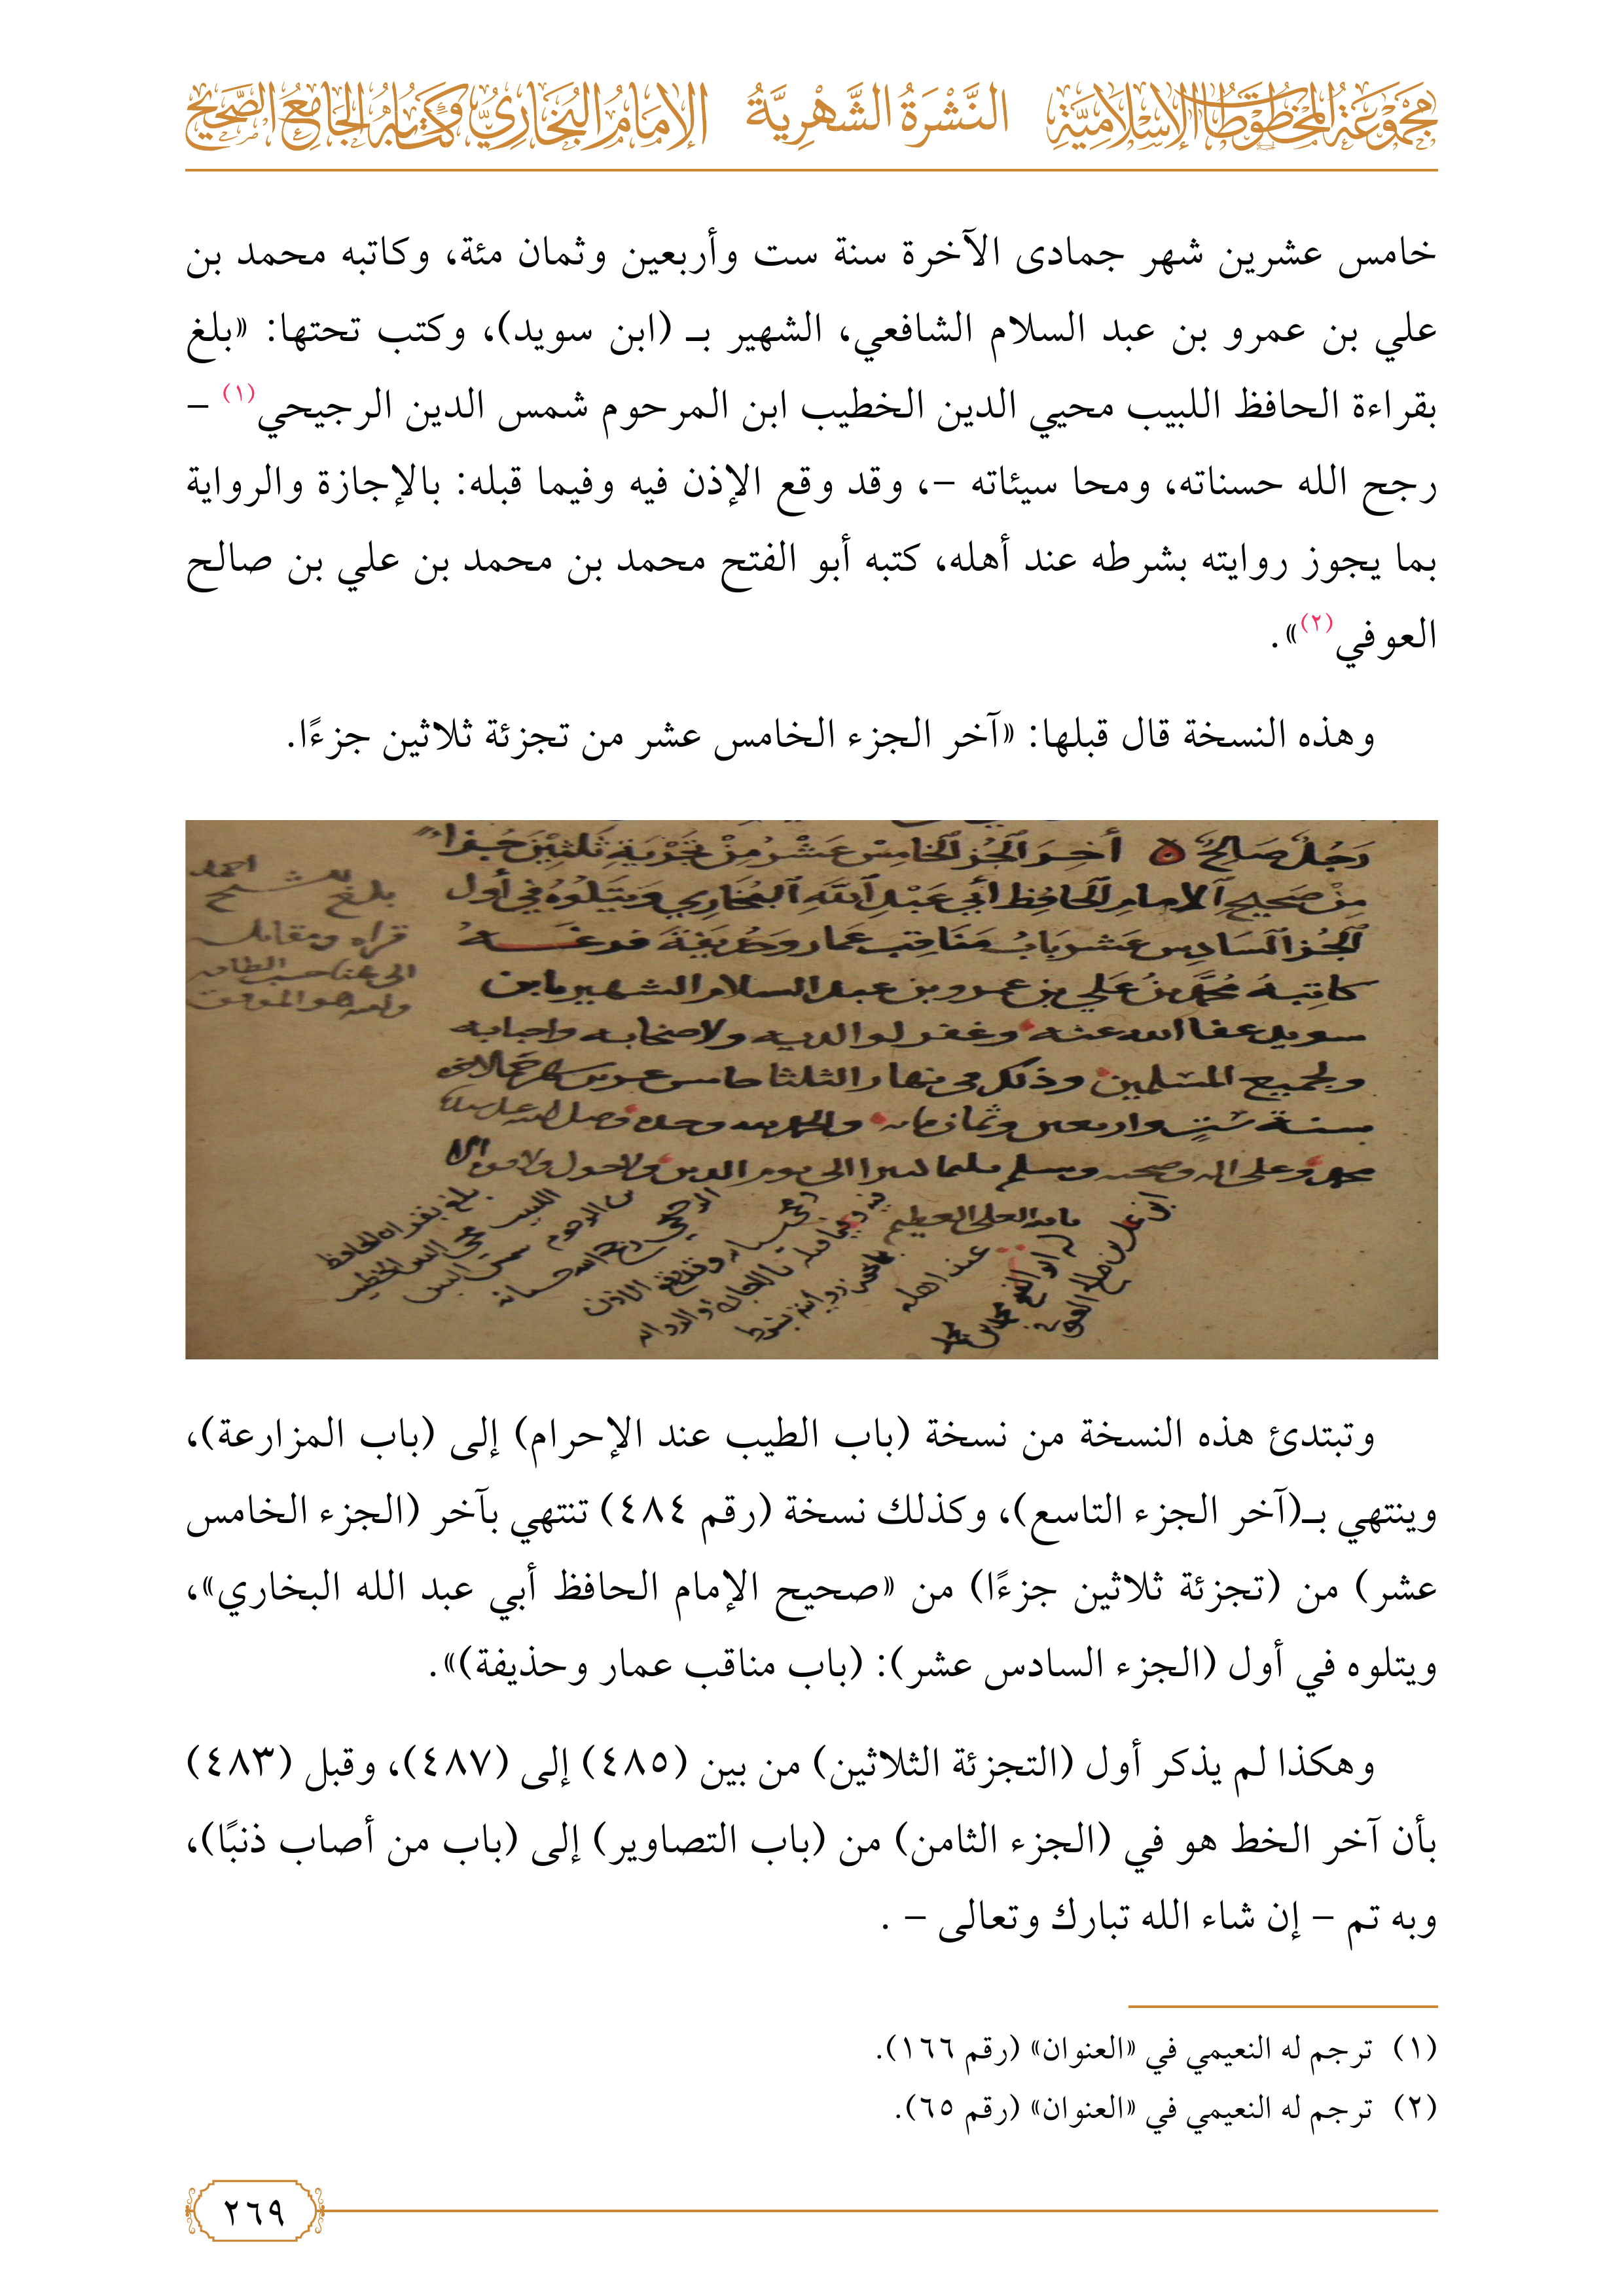 مجموعة المخطوطات الإسلامية النَّشْرَةُ الشَّهْرِيَّةُ الإمام البخاري وكتابه الجامع الصحيح
خامس عشرين شهر جمادى الآخرة سنة ست وأربعين وثمان مئة، وكاتبه محمد بن
علي بن عمرو بن عبد السلام الشافعي، الشهير بـ (ابن سويد)، وكتب تحتها: «بلغ
بقراءة الحافظ اللبيب محيي الدين الخطيب ابن المرحوم شمس الدين الرجيحي(١) –
رجح الله حسناته، ومحا سيئاته –، وقد وقع الإذن فيه وفيما قبله: بالإجازة والرواية
بما يجوز روايته بشرطه عند أهله، كتبه أبو الفتح محمد بن محمد بن علي بن صالح
العوفي(٢)».
وهذه النسخة قال قبلها: «آخر الجزء الخامس عشر من تجزئة ثلاثين جزءًا.
رَجُلٌ صَالِحٌ أخِرَ الجُز الخامِسْ عَشْرُ مِنْ تَجْزِيَةِ ثَلثِيْنَ جُزا
مِنْ صَحِيحِ الامام الحافِظ أبي عَبْدِ اللهِ البُخَارِي وَيَتْلُوهُ في أول
الجُز السَادِس عَشر بَابُ مَنَاقِب عَمار وَحُذيفَة فرغــه
كاتِبهُ مُحَّمدْ بنُ عَلي بن عمرو بن عبد السلام الشهير بابن
سويد عفا الله عنه وغفر لوالديه ولاصحابه واحبابه
ولجميع المسلمين وذلك في نهار الثلثا خامس عشرين شهر جما الاخره
سنة سْتٍ واربعين وثمان مايه والحمد لله وحده وصلى الله على سيدنا
محمد وعلى اله وصحبه وسلم تسليما كثيرا الى يوم الدين ولا حول ولا قوه الا
بالله العلي العظيم
بلغ الشيخ احمد
قراه ومقابله
الى هنا حسب الطاقه
والله هو الموفق
بلغ بقراه الحافظ
اللبيب محيي الدين الخطيب
بن المرحوم شمس الدين
الرجيحي رجح الله حسناته
وقد وقع الاذن
فيه وفيما قبله بالاجازه والروايه
روايته بشرطه
عند اهله
ابو الفتح محمد بن محمد
ابن علي بن صالح العوفي
وتبتدئ هذه النسخة من نسخة (باب الطيب عند الإحرام) إلى (باب المزارعة)،
وينتهي بـ(آخر الجزء التاسع)، وكذلك نسخة (رقم ٤٨٤) تنتهي بآخر (الجزء الخامس
عشر) من (تجزئة ثلاثين جزءًا) من «صحيح الإمام الحافظ أبي عبد الله البخاري»،
ويتلوه في أول (الجزء السادس عشر): (باب مناقب عمار وحذيفة)».
وهكذا لم يذكر أول (التجزئة الثلاثين) من بين (٤٨٥) إلى (٤٨٧)، وقبل (٤٨٣)
بأن آخر الخط هو في (الجزء الثامن) من (باب التصاوير) إلى (باب من أصاب ذنبًا)،
وبه تم – إن شاء الله تبارك وتعالى – .
(١) ترجم له النعيمي في «العنوان» (رقم ١٦٦).
(٢) ترجم له النعيمي في «العنوان» (رقم ٦٥).
٢٦٩